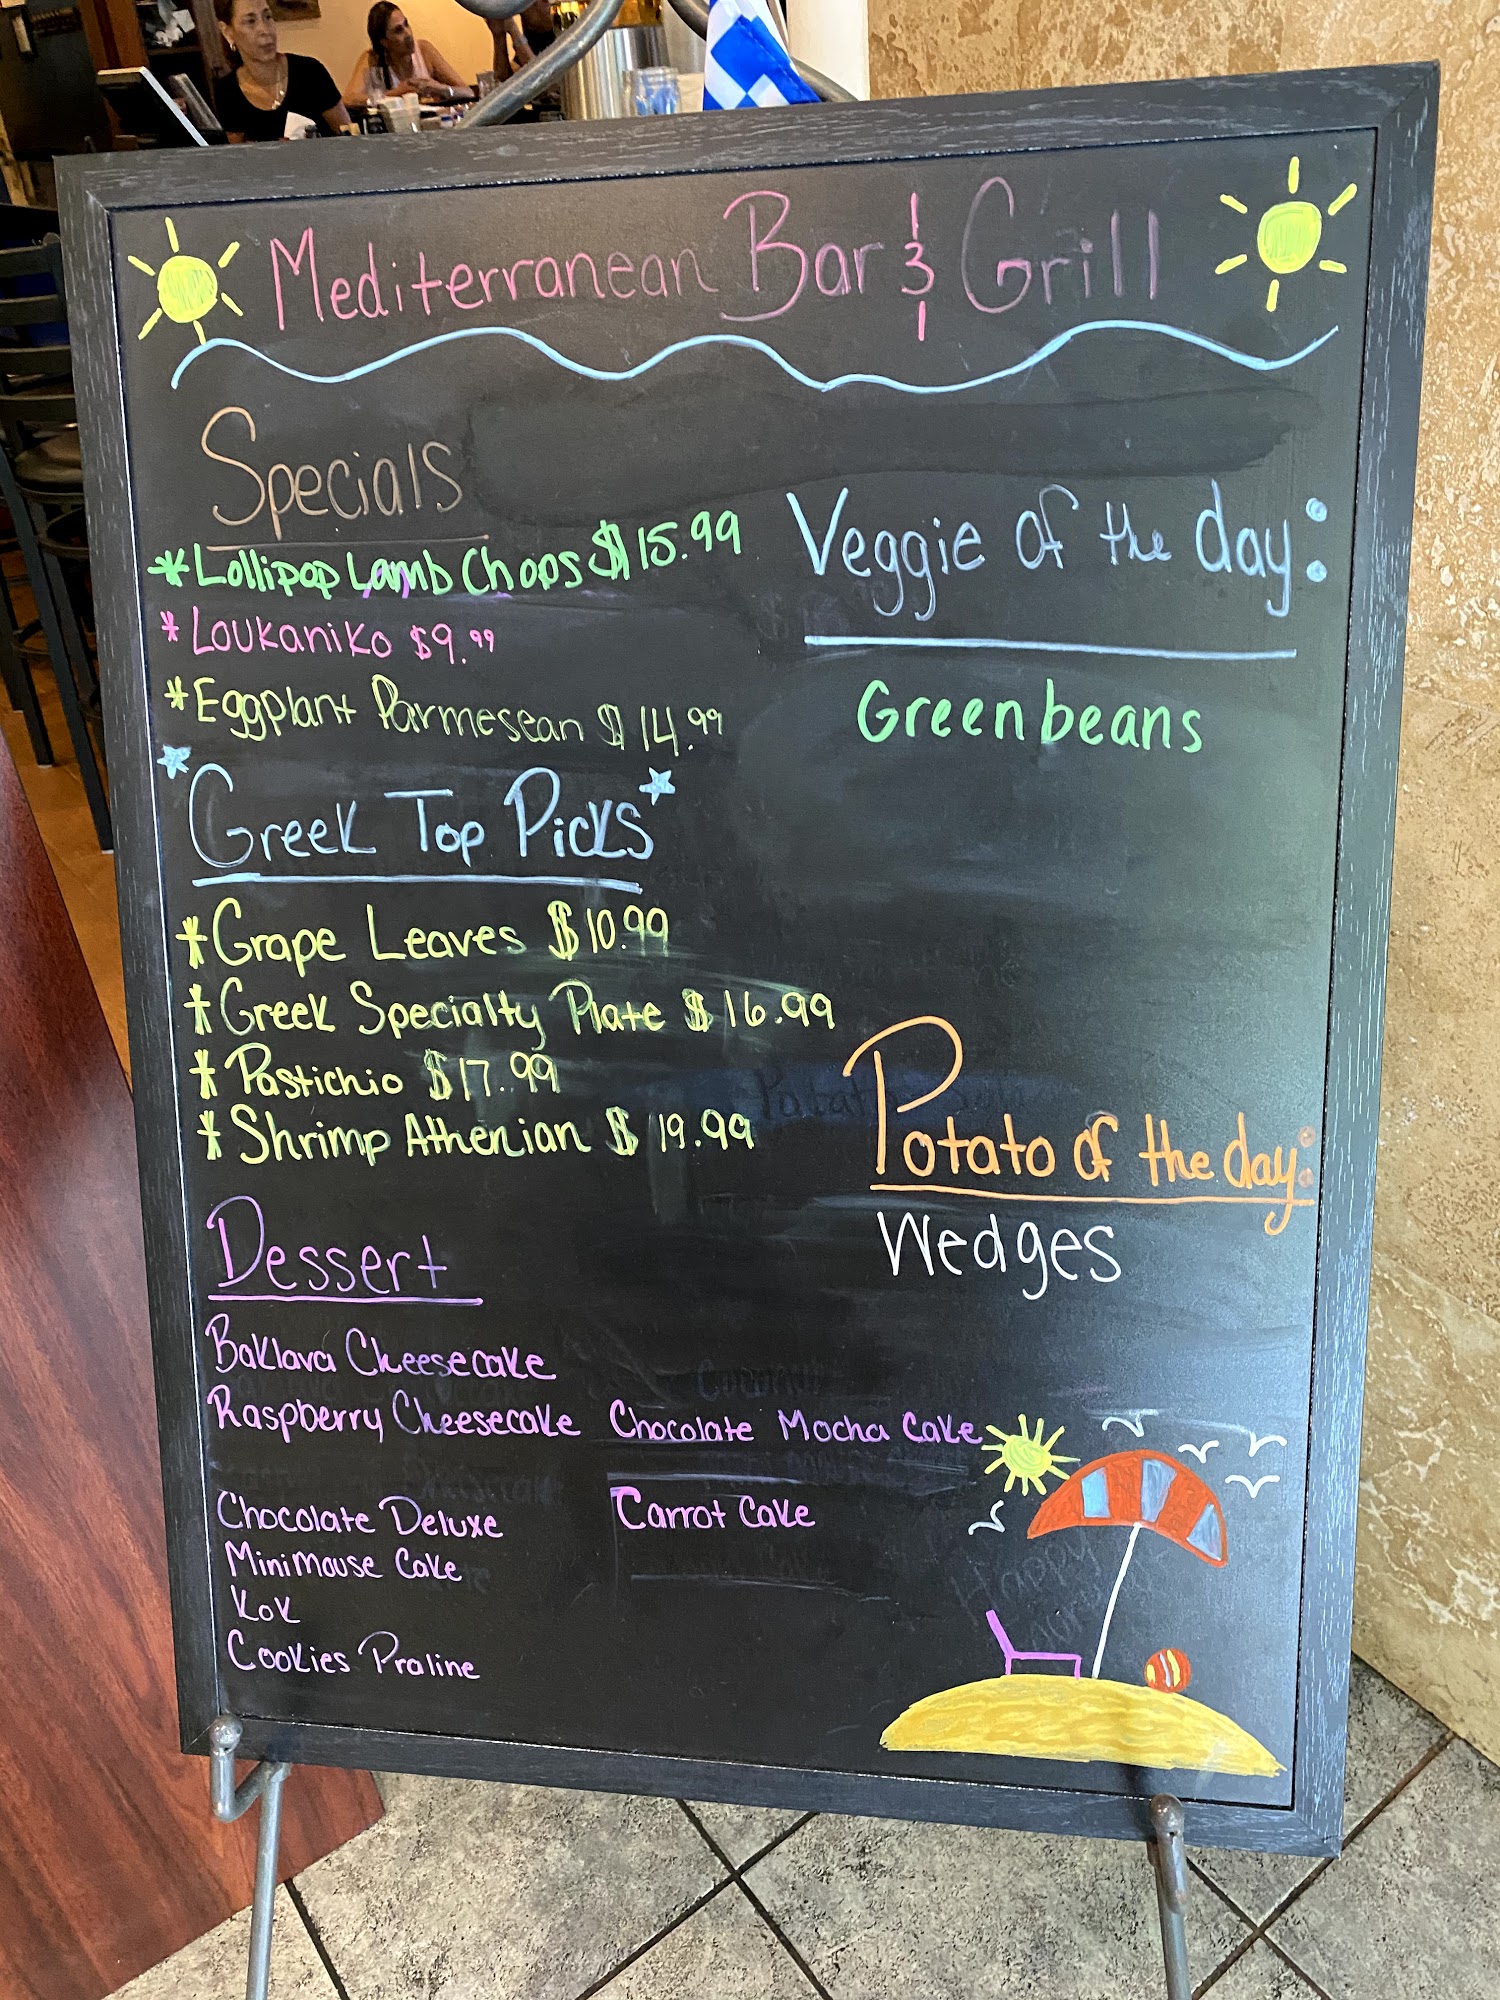 Mediterranean Bar & Grill
Specials
*Lollipop Lamb Chops $15.99
*Loukaniko $9.99
*Eggplant Parmesean $14.99
Veggie of the day:
Greenbeans
*Greek Top Picks*
*Grape Leaves $10.99
*Greek Specialty Plate $16.99
*Pastichio $17.99
*Shrimp Athenian $19.99
Potato of the day:
Wedges
Dessert
Baklava Cheesecake
Raspberry Cheesecake
Chocolate Mocha Cake
Chocolate Deluxe
Carrot Cake
Minimouse Cake
Kok
Cookies Praline